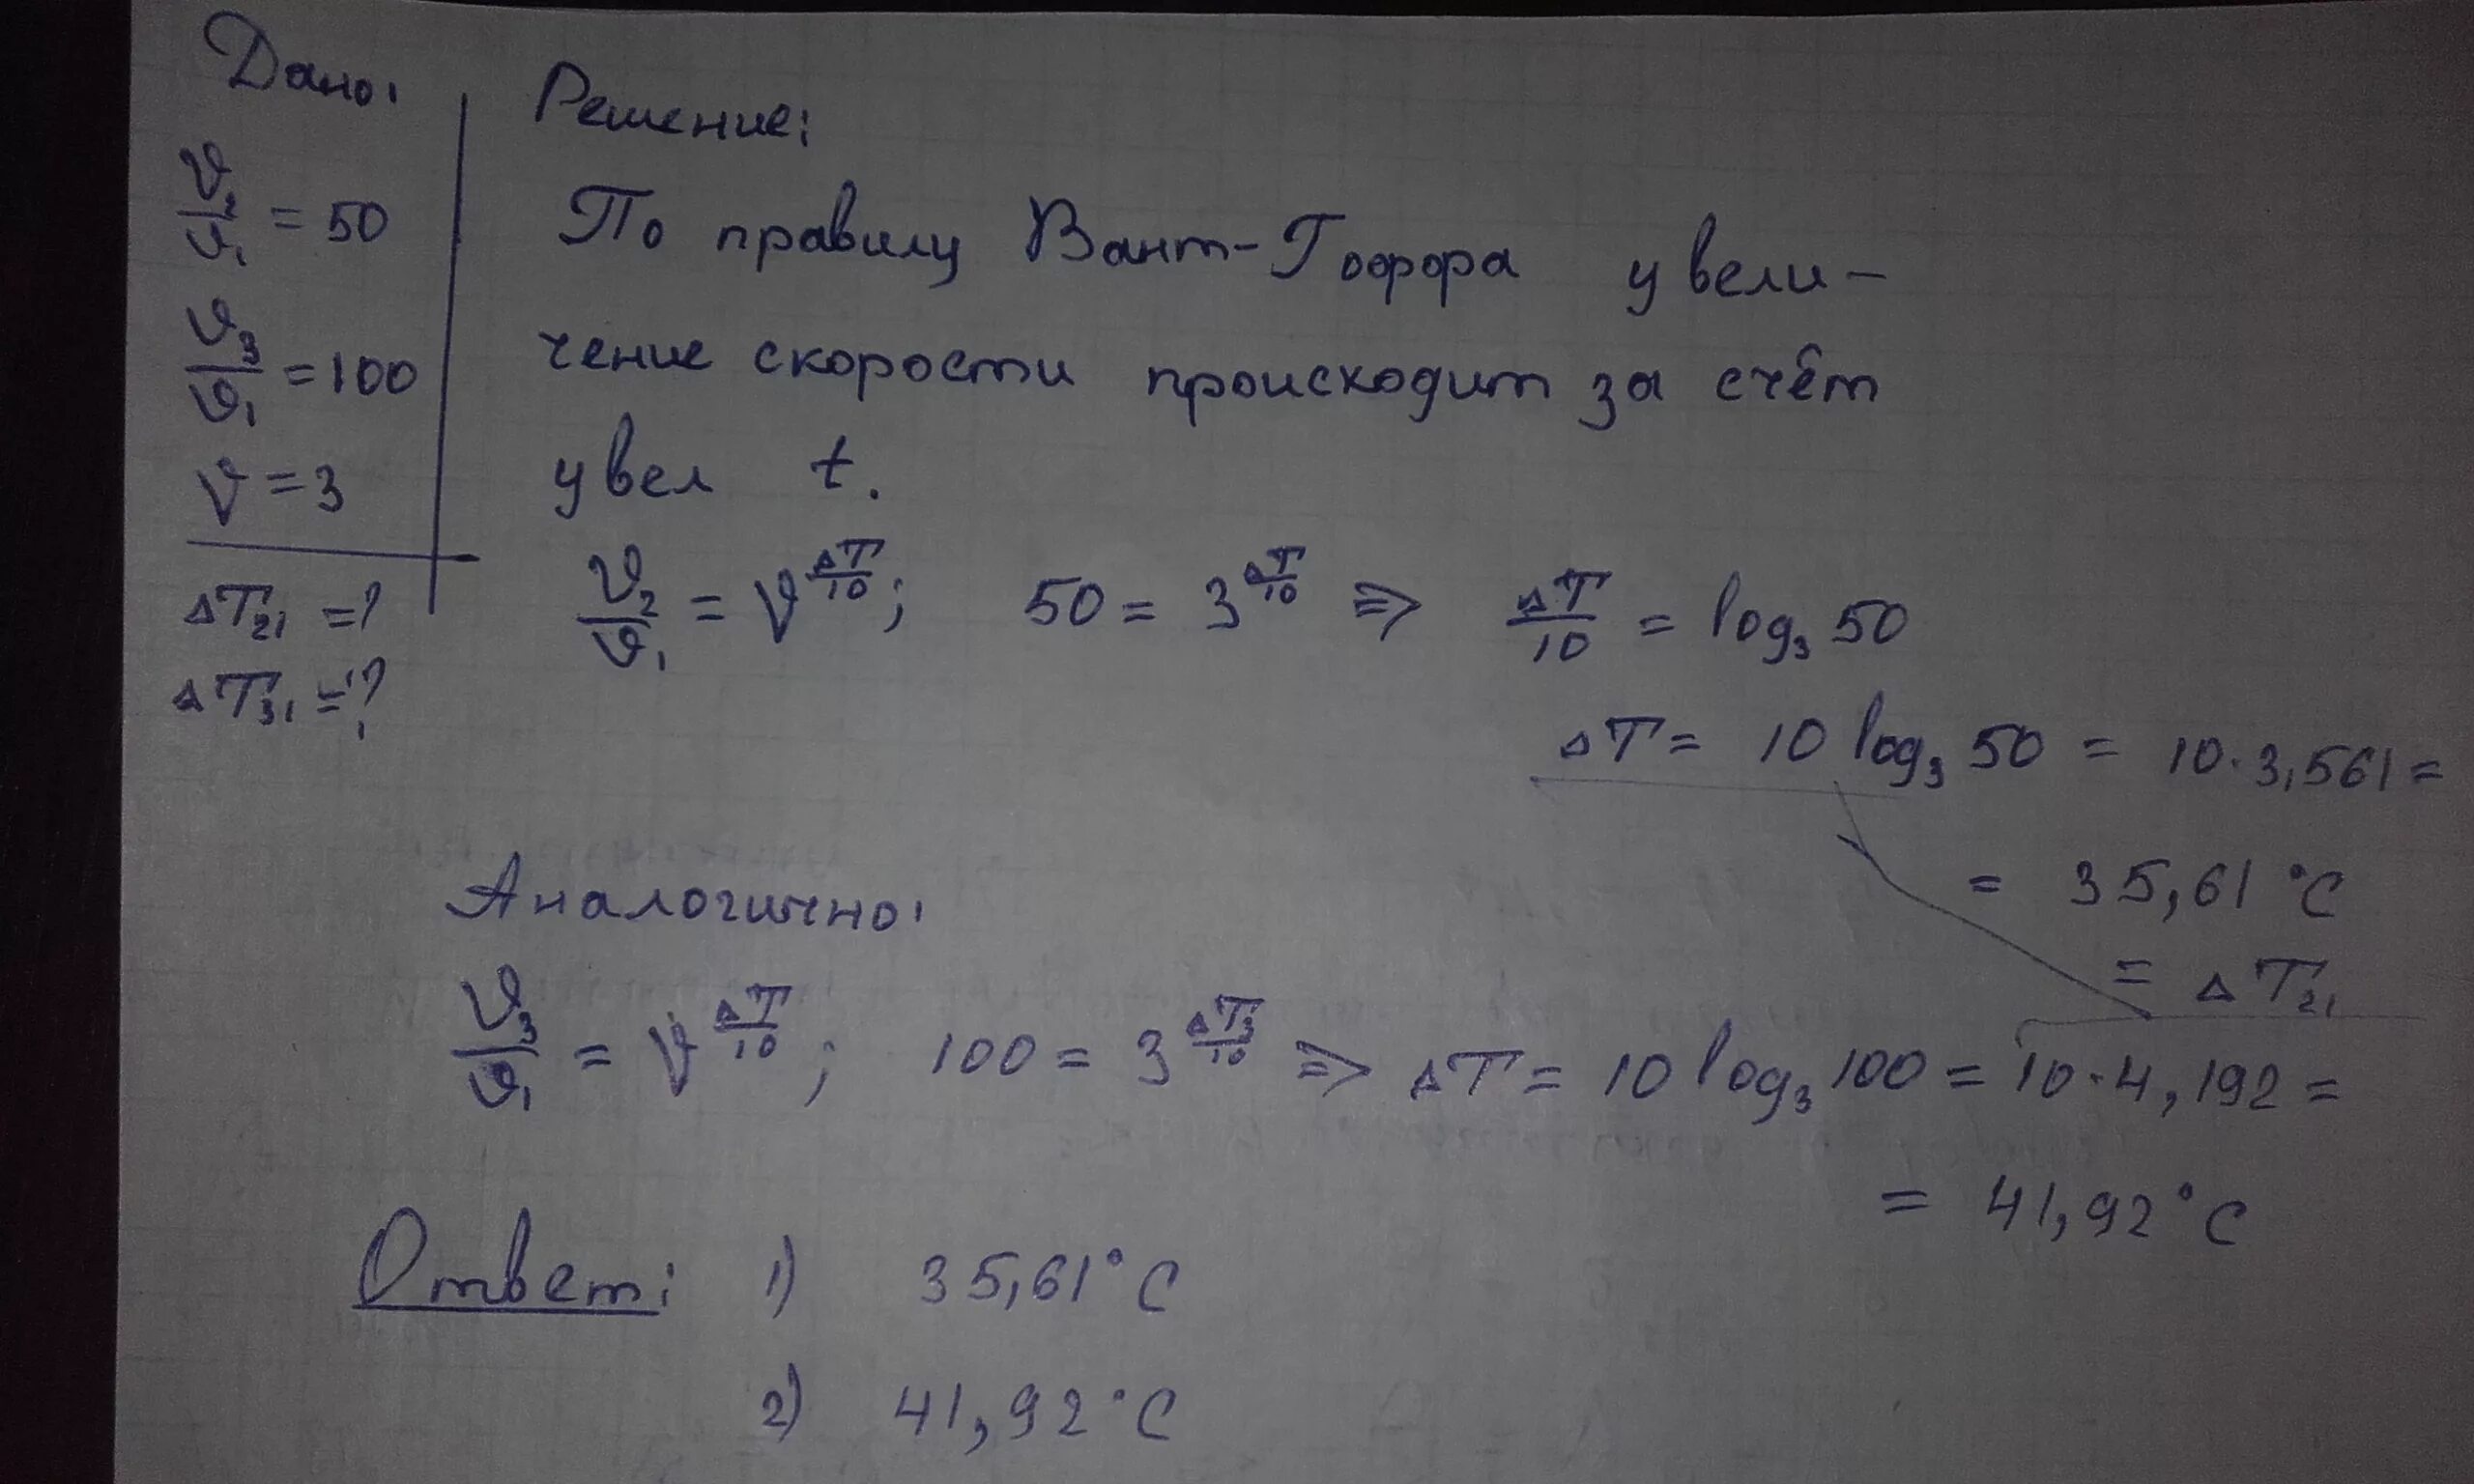 Дано:
υ₂/υ₁ = 50
υ₃/υ₁ = 100
γ = 3
ΔT₂₁ = ?
ΔT₃₁ = ?
Решение:
По правилу Вант-Гоффа увели-
чение скорости происходит за счёт
увел t.
υ₂/υ₁ = γ^(ΔT/10); 50 = 3^(ΔT/10) => ΔT/10 = log₃ 50
ΔT = 10 log₃ 50 = 10·3,561 =
= 35,61 °C
= ΔT₂₁
Аналогично:
υ₃/υ₁ = γ^(ΔT/10); 100 = 3^(ΔT₃/10) => ΔT = 10 log₃ 100 = 10·4,192 =
= 41,92 °C
Ответ: 1) 35,61 °C
2) 41,92 °C